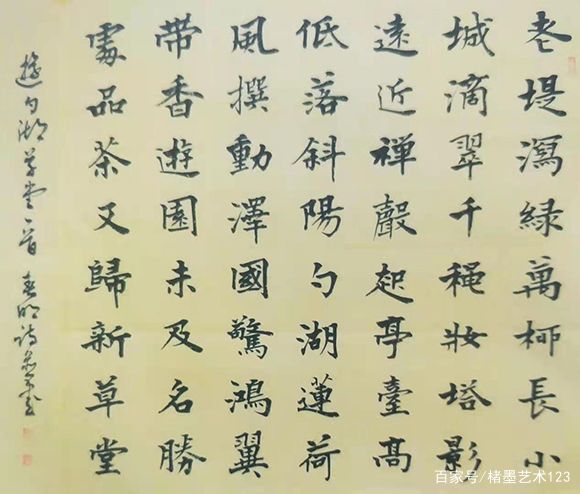 老堤瀉緑萬柳長小
城滴翠千穐妝塔影
遠近禪聲起亭臺高
低落斜陽勺湖蓮荷
風撰動澤國驚鴻翼
帶香遊園未及名勝
處品茶又歸新草堂
遊勺湖草堂一首 春明詩並書
百家号/楮墨艺术123